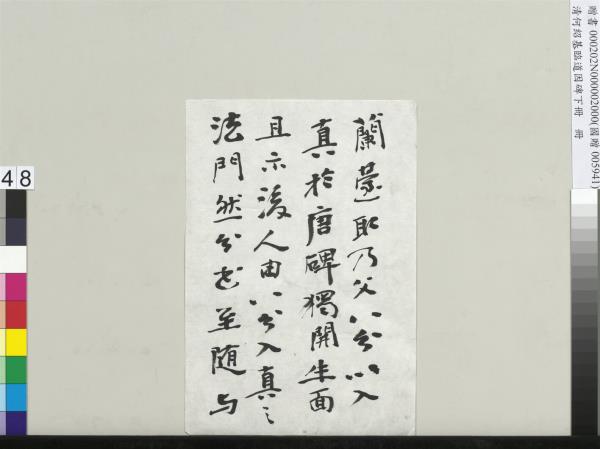 蘭臺取乃父八分以入
真於唐碑獨開生面
且示後人由八分入真之
法門然分書至隨與
贈書 000202N000002000(國贈 005941)
清何紹基臨道因碑下冊 冊
48